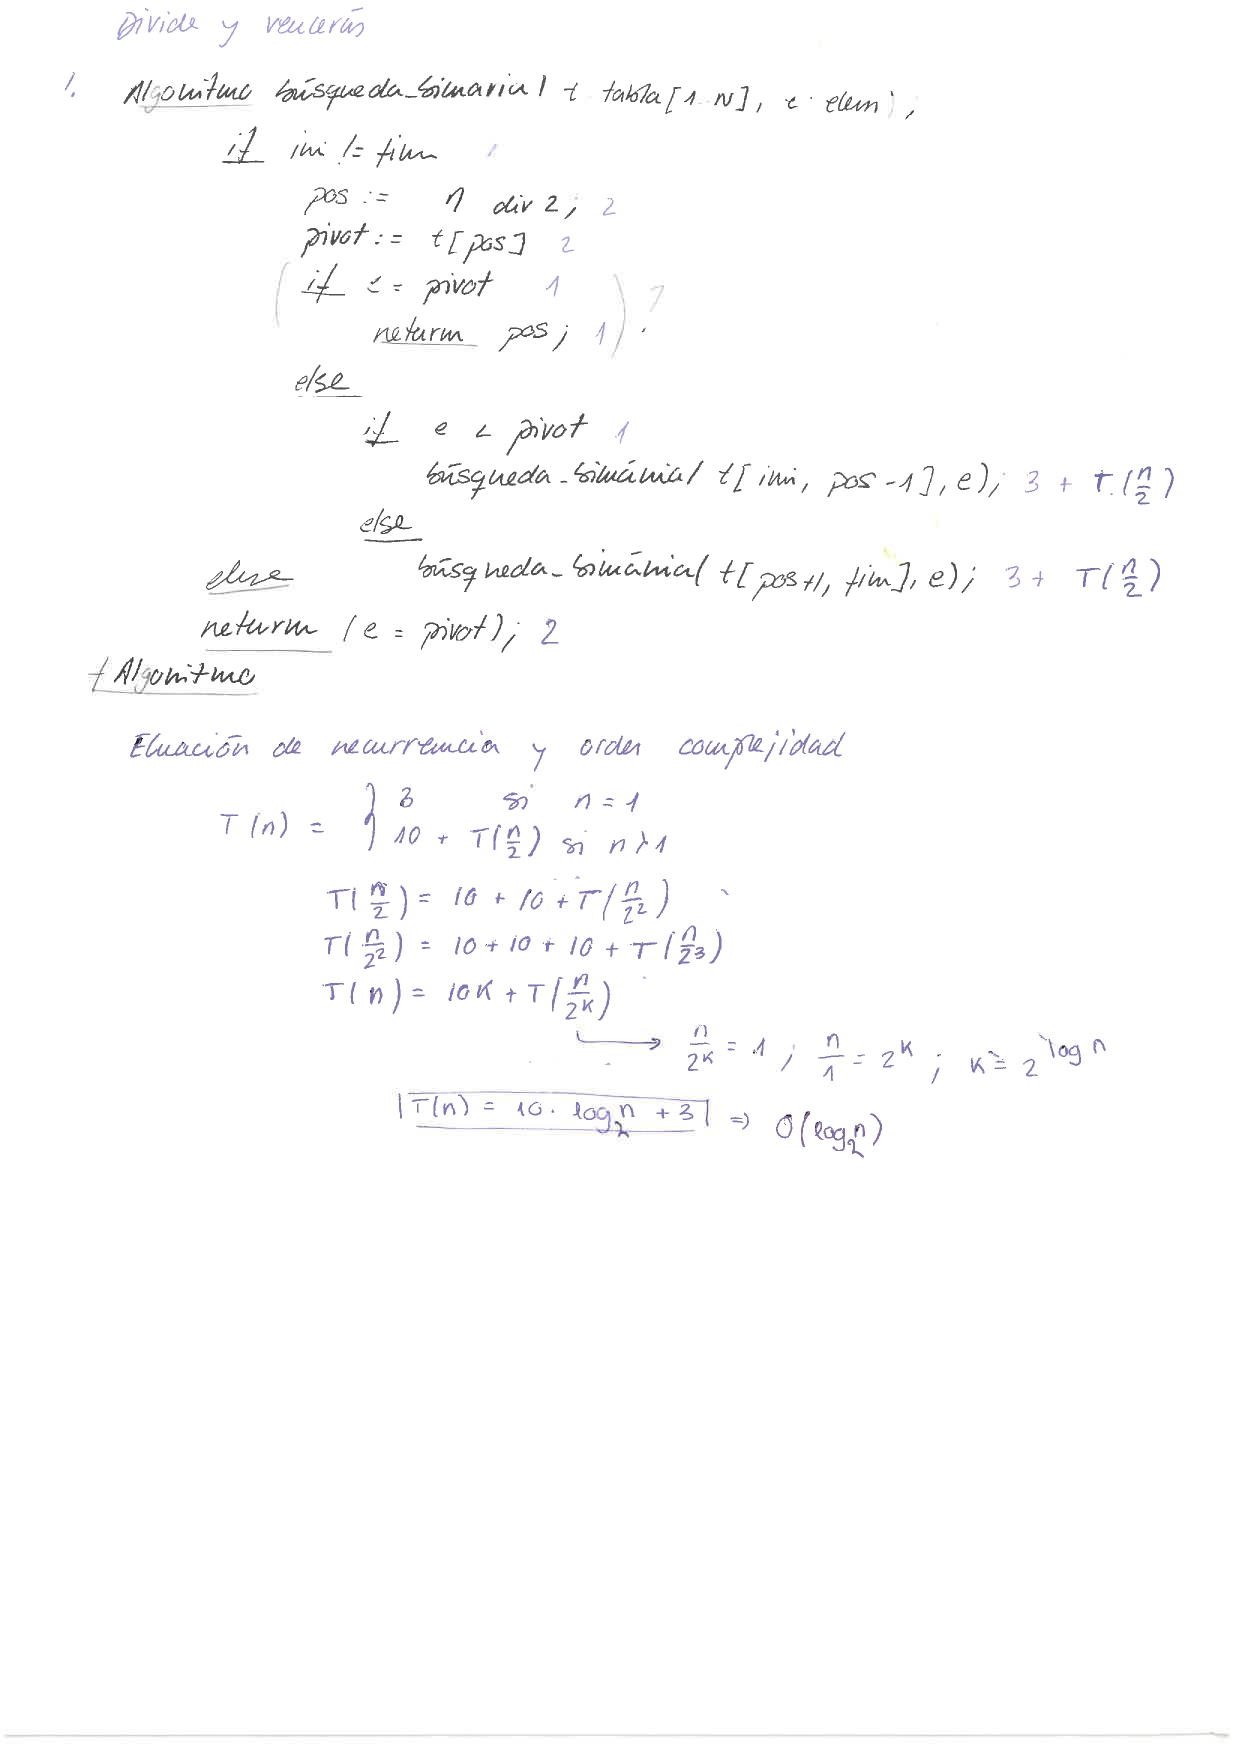 Divide y vencerás
1. Algoritmo búsqueda_binaria( t tabla[1..N], e: elem),
if ini != fin 1
pos := n div 2; 2
pivot := t[pos] 2
( if e = pivot 1
return pos; 1 ) ?
else
if e < pivot 1
búsqueda_binária( t[ini, pos-1], e); 3 + T(n/2)
else
búsqueda_binária( t[pos+1, fin], e); 3 + T(n/2)
else
return (e = pivot); 2
fAlgoritmo
Ecuación de recurrencia y orden complejidad
T(n) = } 3 si n = 1
10 + T(n/2) si n > 1
T(n/2) = 10 + 10 + T(n/2²)
T(n/2²) = 10 + 10 + 10 + T(n/2³)
T(n) = 10K + T(n/2ᴷ)
→ n/2ᴷ = 1 ; n/1 = 2ᴷ ; K = 2 log n
T(n) = 10 · log₂n + 3 => O(log₂n)